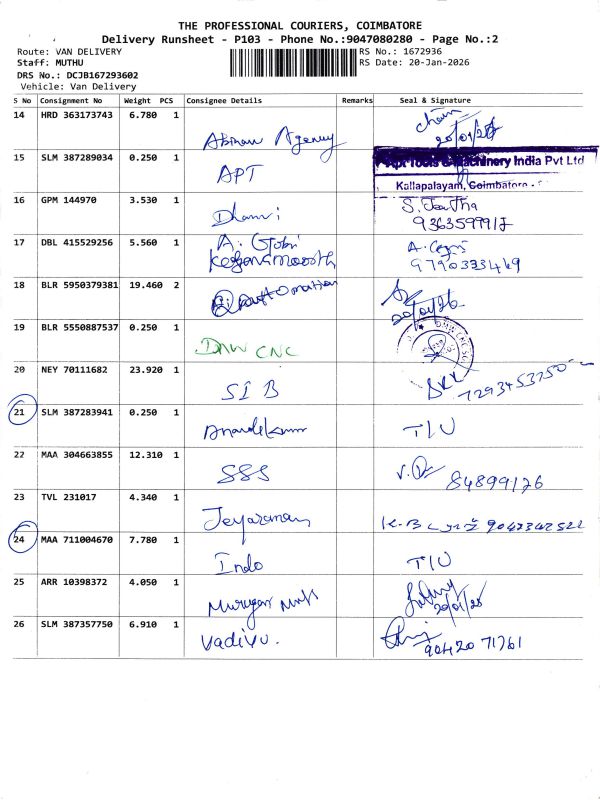 THE PROFESSIONAL COURIERS, COIMBATORE
Delivery Runsheet - P103 - Phone No.:9047080280 - Page No.:2
Route: VAN DELIVERY
RS No.: 1672936
Staff: MUTHU
RS Date: 20-Jan-2026
DRS No.: DCJB167293602
Vehicle: Van Delivery
S No Consignment No Weight PCS Consignee Details Remarks Seal & Signature
14 HRD 363173743 6.780 1
Abinav Agency
20/01/26
15 SLM 387289034 0.250 1
APT
Apt Tools & Machinery India Pvt Ltd
Kallapalayam, Coimbatore
16 GPM 144970 3.530 1
Dhanvi
S.
17 DBL 415529256 5.560 1
A. Gobi
9790333469
18 BLR 5950379381 19.460 2
Automation
20/01/26
19 BLR 5550887537 0.250 1
DMW CNC
20 NEY 70111682 23.920 1
SIB
7293453750
21 SLM 387283941 0.250 1
T/U
22 MAA 304663855 12.310 1
SSS
84899176
23 TVL 231017 4.340 1
Jeyaraman
24 MAA 711004670 7.780 1
Indo
T/U
25 ARR 10398372 4.050 1
Murugan
20/01/26
26 SLM 387357750 6.910 1
Vadivu.
90420 71761